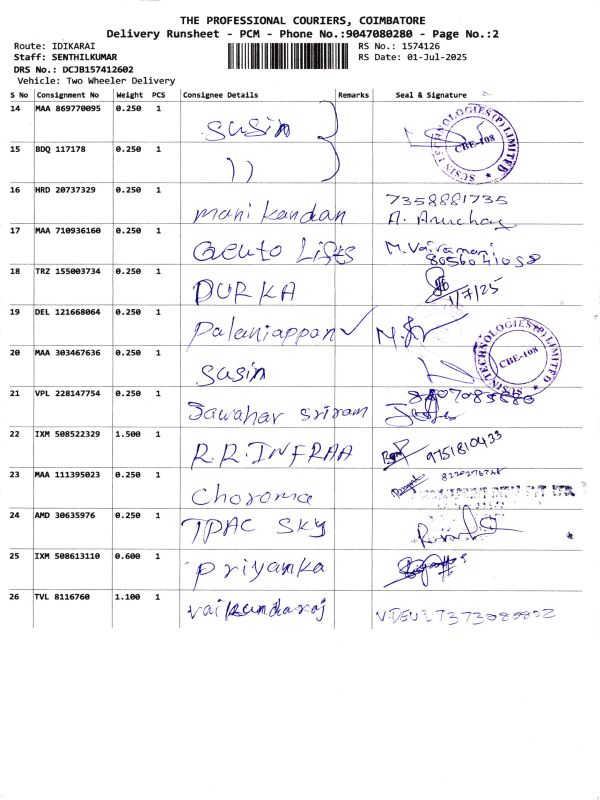 THE PROFESSIONAL COURIERS, COIMBATORE
Delivery Runsheet - PCM - Phone No.:9047080280 - Page No.:2
Route: IDIKARAI
RS No.: 1574126
Staff: SENTHILKUMAR
RS Date: 01-Jul-2025
DRS No.: DCJB157412602
Vehicle: Two Wheeler Delivery
S No Consignment No Weight PCS Consignee Details Remarks Seal & Signature
14 MAA 869770095 0.250 1 Susin
SUSIN TECHNOLOGIES (P) LIMITED CBE-108
15 BDQ 117178 0.250 1 ))
16 HRD 20737329 0.250 1 mani kandan 7358881735
17 MAA 710936160 0.250 1 Lifts M. Vairamani
18 TRZ 155003734 0.250 1 DURKA 1/7/25
19 DEL 121668064 0.250 1 Palaniappan
20 MAA 303467636 0.250 1 Susin
SUSIN TECHNOLOGIES (P) LIMITED CBE-108
21 VPL 228147754 0.250 1 Jawahar sriram
22 IXM 508522329 1.500 1 R.R.INFRAA 9751810433
23 MAA 111395023 0.250 1 Choroma
24 AMD 30635976 0.250 1 TPAC SKY
25 IXM 508613110 0.600 1 Priyanka
26 TVL 8116760 1.100 1 vaikundaraj